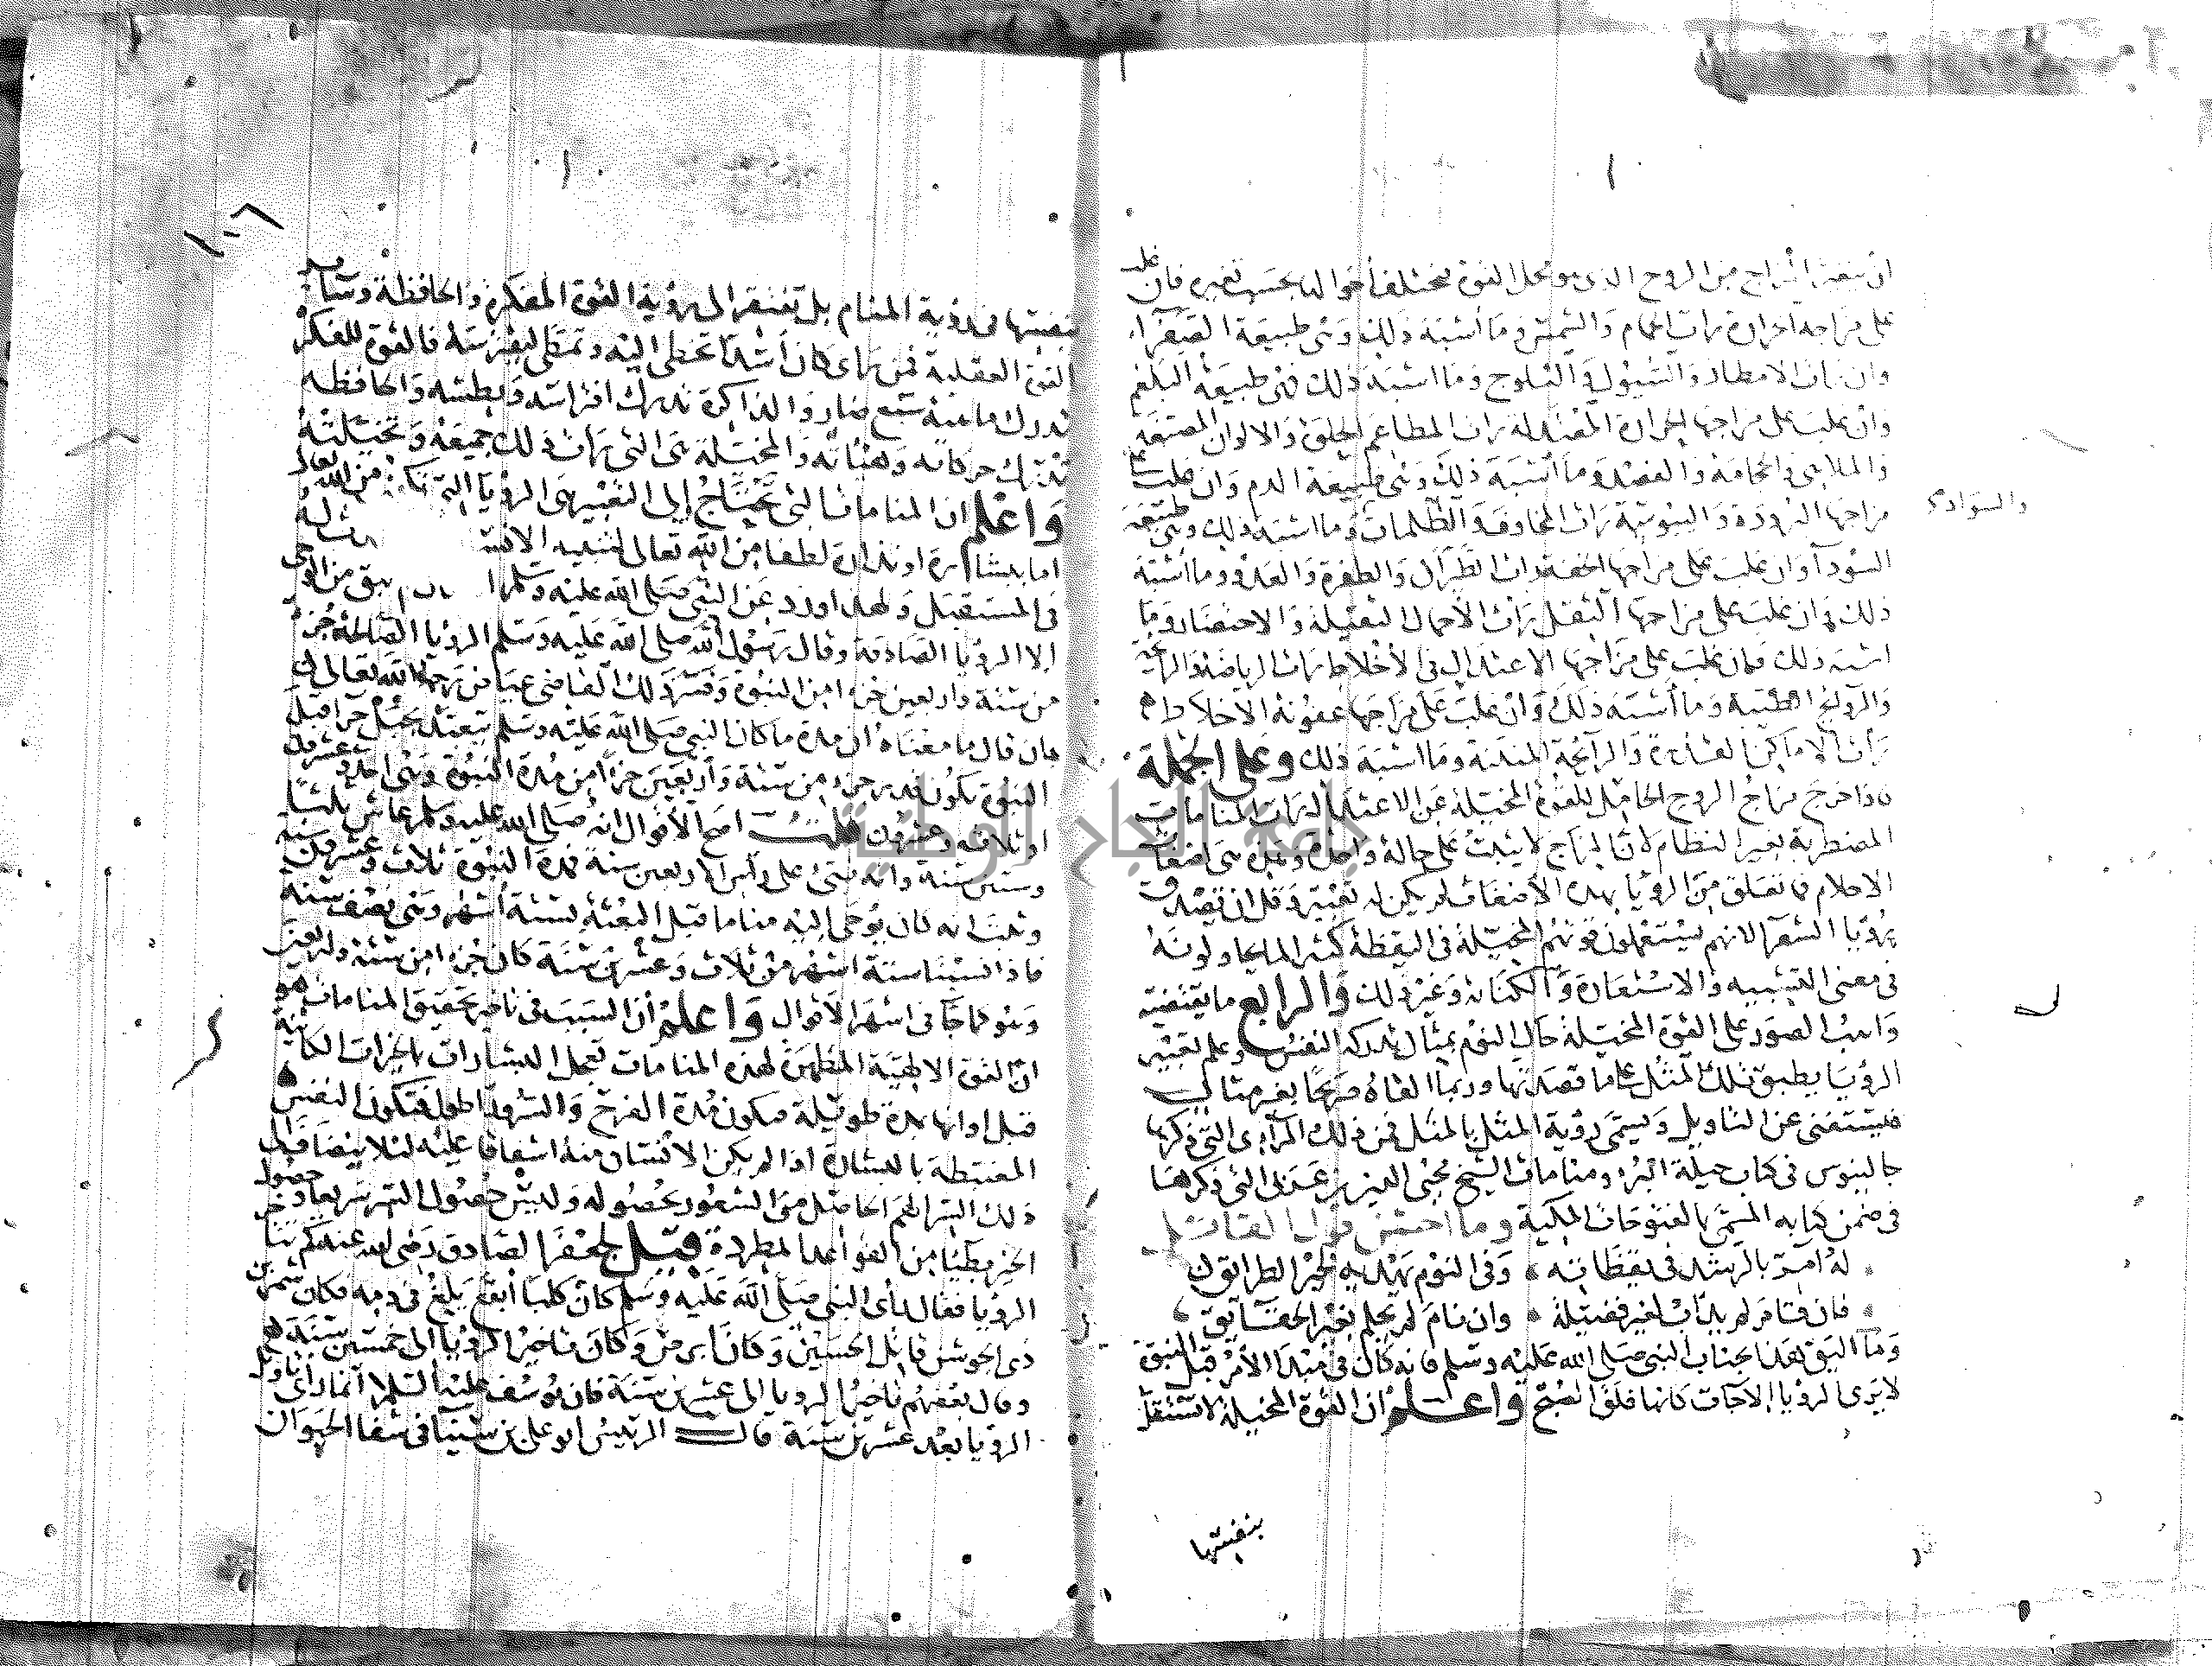 ان يتغير المزاج من الروح الذي هو محل القوة فيختلف احوالها بحسب تغيره فان غلب
على مزاجه الحرارة رات الحمام والشمس وما اشبه ذلك وهى طبيعة الصفراء
وان رات الامطار والسيول والثلوج وما اشبه ذلك فهى طبيعة البلغم
وان غلبت على مزاجها الحرارة المعتدلة رات المطاعم الحلوة والالوان المصبغه
والملاهى والحجامة والفصد وما اشبه ذلك وهى طبيعة الدم وان غلبت على
والسوادى
مزاجها البرودة واليبوسة رات المخاوف والظلمات وما اشبه ذلك وهى طبيعة
السودآ وان غلب على مزاجها الخفة رات الطيران والطفرة والعدو وما اشبه
ذلك وان غلب على مزاجها الثقل رات الاحمال الثقيلة والاحتضار وما
اشبه ذلك فان غلب على مزاجها الاعتدال فى الاخلاط رات الرياض
والروايح الطيبة وما اشبه ذلك وان غلبت على مزاجها عفونة الاخلاط
رات الاماكن القذرة والرائحة المنتنة وما اشبه ذلك وعلى الجملة
فاذا خرج مزاج الروح الحامل للقوة المخيلة عن الاعتدال رات المنامات
المضطربة بغير النظام لان المزاج لا يثبت على حالة واحدة وهذه هى اضغاث
الاحلام فما تعلق من الرؤيا بهذه الاضغاث لم يكن له تعبير وقل ان تصدق
رؤيا الشعرآ لانهم يستعملون قوتهم المخيلة فى اليقظة كثيرا لما يحاولونه
فى معنى التشبيه والاستعارة والكناية وغير ذلك والرابع ما يفيضه
واهب الصور على القوة المخيلة حال النوم بمثال تدركه النفس وعلم تعبير
الرؤيا يطبق تلك المثل على ما قصد بها وربما القاه صريحا بغير مثال
فيستغنى عن التاويل ويسمى رؤية المثل بالمثل فمن ذلك المرآءى التى ذكرها
جالينوس فى كتاب حيلة البرء ومنامات الشيخ محيى الدين بن عربى التى ذكرها
فى ضمن كتابه المسمى بالفتوحات المكية وما احسن قول القائل
له آمر بالرشد فى يقظاته وفى النوم يهديه لخير الطرائق
فان قام لم يداب لغير فضيلة وان نام لم يحلم بغير الحقايق
وما اليق هذا بجناب النبى صلى الله عليه وسلم فانه كان فى مبدا الامر قبل النبوة
لا يرى الرؤيا الا جات كانها فلق الصبح واعلم ان القوة المخيلة لا تستقل
بنفسها
بنفسها فى رؤية المنام بل تفتقر الى رؤية القوة المفكرة والحافظة وساير
القوى العقلية فمن راى كان اسدا تخطى اليه وتمطى ليفترسه فالقوة المفكرة
تدرك ماهية سبع ضار والذاكرة تدرك افتراسه وبطشه والحافظه
تدرك حركاته وهيئاته والمخيلة هى التى رات ذلك جميعه وتخيلته
واعلم ان المنامات التى تحتاج الى التعبير هى الرؤيا التى تكون من الله تعالى
اما بشارة او نذارة لطفا من الله تعالى لتنبيه الانسان
فى المستقبل ولهذا ورد عن النبى صلى الله عليه وسلم يبق من الوحى
الا الرؤيا الصادقة وقال رسول الله صلى الله عليه وسلم الرؤيا الصالحة جزء
من ستة واربعين جزءا من النبوة وفسر ذلك القاضى عياض رحمه الله تعالى
بان قال ما معناه ان مدة ما كان النبى صلى الله عليه وسلم يتعبد بجبل حرا قبل
النبوة تكون قدر جزء من ستة واربعين جزءا من مدة النبوة وهى احد وعشرون
او ثلاثه وعشرون قلت اصح الاقوال انه صلى الله عليه وسلم عاش ثلثا
وستين سنة وانه نبئ على راس الاربعين سنة فمدة النبوة ثلاث وعشرون سنة
وثبت انه كان يوحى اليه مناما قبل البعثة بستة اشهر وهى نصف سنة
فاذا نسبنا ستة اشهر من ثلاث وعشرين سنة كان جزءا من ستة واربعين
وهو كما جآ فى اشهر الاقوال واعلم ان السبب فى تاخير تحقيق المنامات هو
ان القوة الالهية المظهرة لهذه المنامات تعجل البشارات بالخيرات الكائنة
قبل اوانها بمدة طويلة فيكون مدة الفرح والسرور اطول فتكون النفس
المغتبطة بالبشارة اذا لم يكن الانسان منه اشفاقا عليه لئلا
ذلك البشر الهم الحاصل من الشعور بحصوله وليس حصول الشر سريعا وحصول
الخير بطيئا من القواعد المطردة قيل لجعفر الصادق رضى الله عنه كم تتاخر
الرؤيا فقال راى النبى صلى الله عليه وسلم كان كلبا ابقع يلغ فى دمه فكان شمر بن
ذى الجوشن قاتل الحسين وكان ابرص وكان تاخير الرؤيا الى خمسين سنة
وقال بعضهم تاخير الرؤيا الى عشرين سنة فان يوسف عليه السلم انما راى تاويل
الرؤيا بعد عشرين سنة قال الرئيس ابو على بن سينا فى شفا الحيوان
جامع النجاح الوطنية